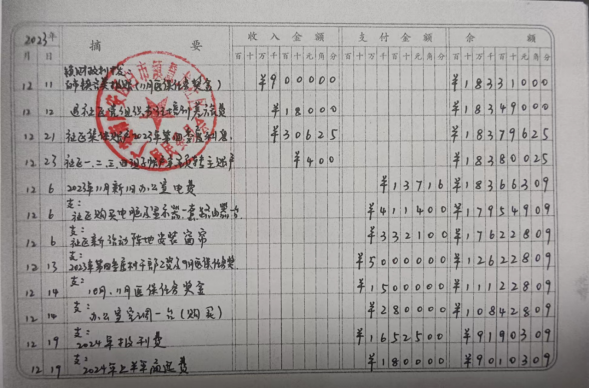 2023年 摘 要 收入金额 支付金额 余 额
月 日 百十万千百十元角分 百十万千百十元角分 百十万千百十元角分
12 11 (11月医保任务奖金) ¥900000 ¥18331000
12 12 ¥18000 ¥18349000
12 21 社区集体账户2023年第四季度利息 ¥30625 ¥18379625
12 23 社区一、二、三、四组子账户 ¥400 ¥18380025
12 6 2023年11月新旧办公室电费 ¥13716 ¥18366309
支:
12 6 社区购买电脑及显示器一套、路由器一个 ¥411400 ¥17954909
支:
12 6 社区新活动阵地安装窗帘 ¥332100 ¥17622809
支:
12 13 2023年第四季度村干部工资及9月医保任务奖 ¥5000000 ¥12622809
支:
12 14 10月、11月医保任务奖金 ¥1500000 ¥11122809
支:
12 14 办公室空调一台(购买) ¥280000 ¥10842809
支:
12 19 2024年报刊费 ¥1652500 ¥9190309
支:
12 19 2024年上半年 费 ¥180000 ¥9010309